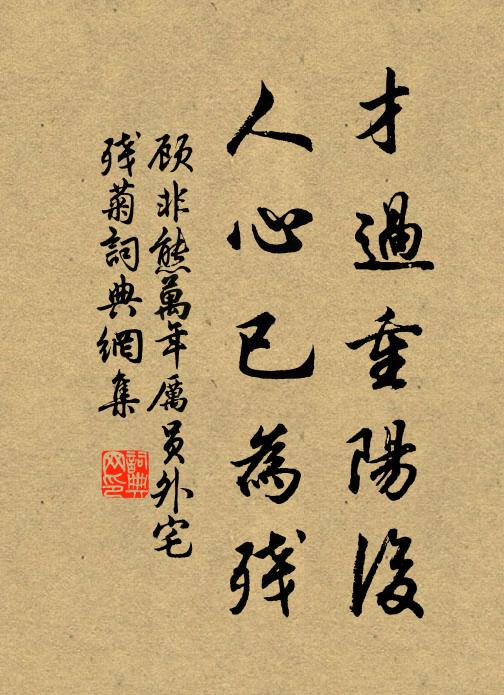 才過重陽後
人心已為殘
顾非熊萬年厲员外宅
残菊詞典網集
詞典网印